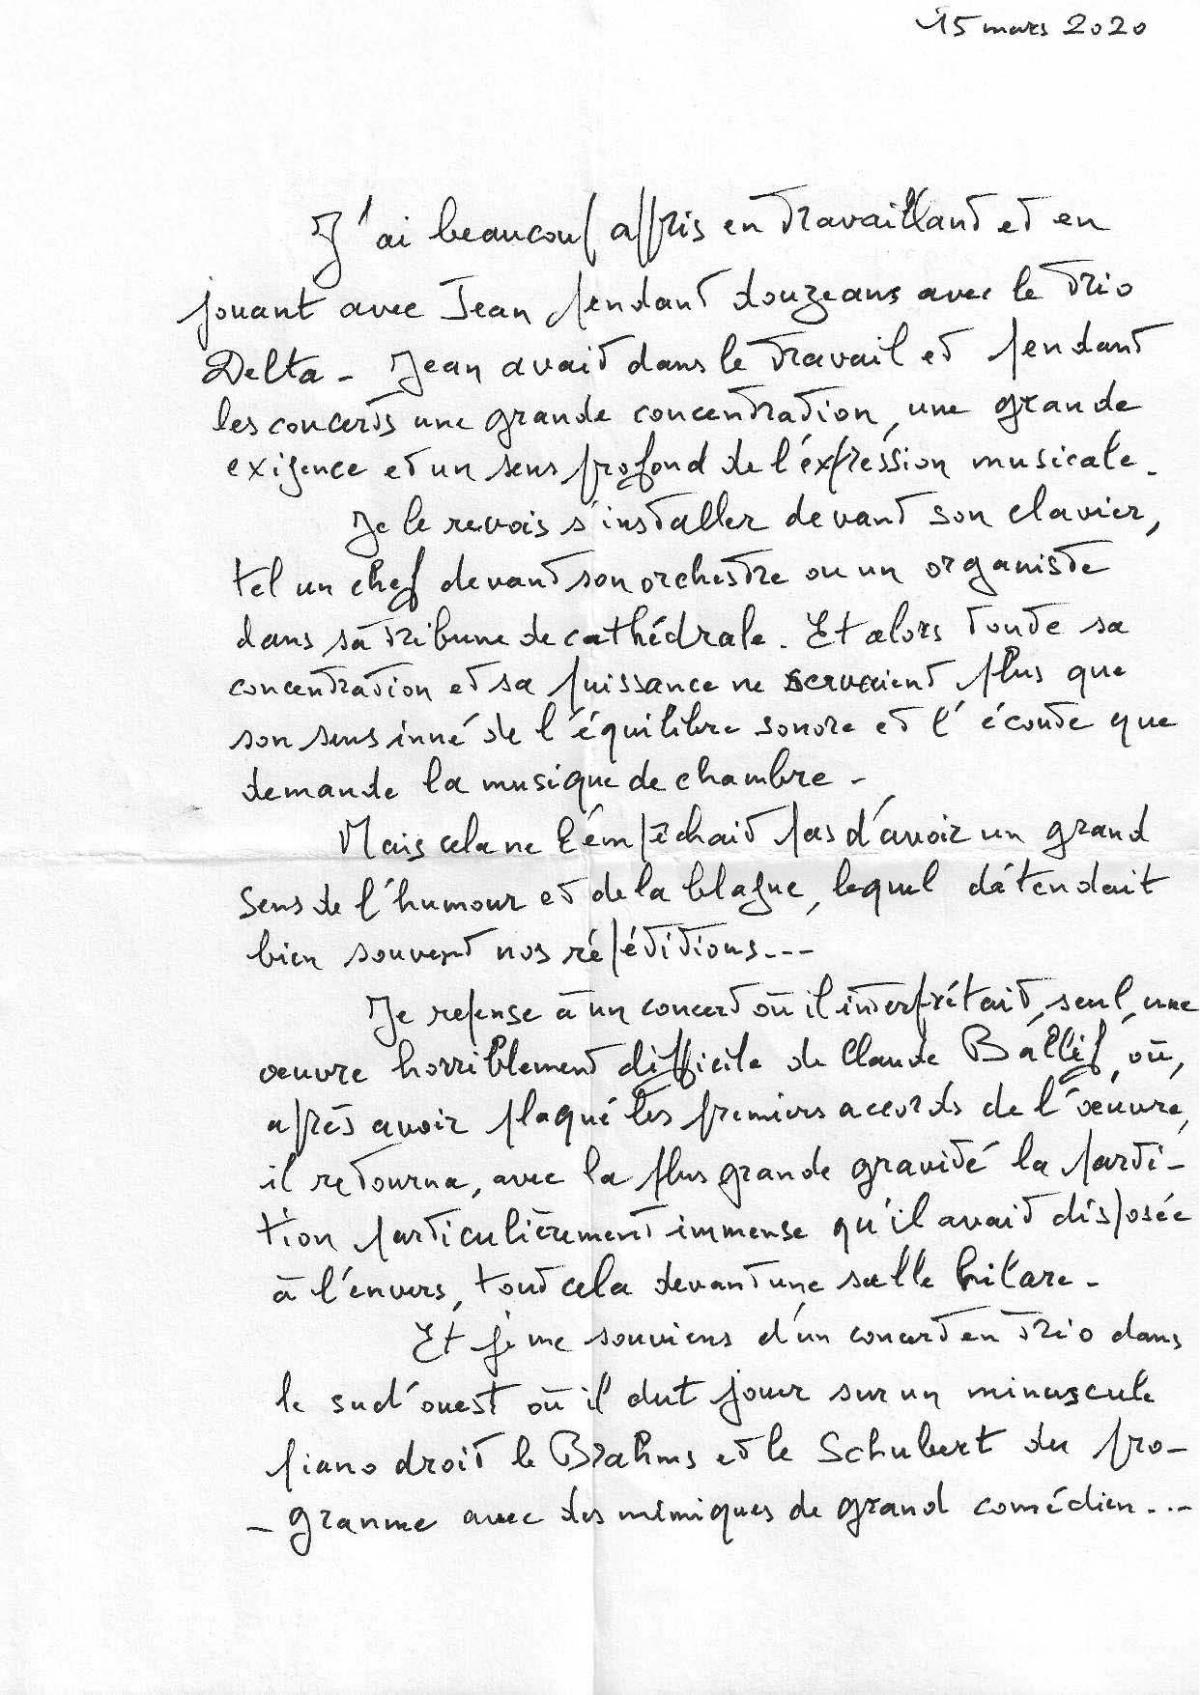 15 mars 2020
J'ai beaucoup appris en travaillant et en
jouant avec Jean pendant douze ans avec le trio
Delta - Jean avait dans le travail et pendant
les concerts une grande concentration, une grande
exigence et un sens profond de l'éxpréssion musicale.
Je le revois s'installer devant son clavier,
tel un chef devant son orchestre ou un organiste
dans sa tribune de cathédrale. Et alors toute sa
concentration et sa puissance ne servaient plus que
son sens inné de l'équilibre sonore et l'écoute que
demande la musique de chambre -
Mais cela ne l'empêchait pas d'avoir un grand
sens de l'humour et de la blague, lequel détendait
bien souvent nos répétitions...
Je repense à un concert où il interprétait, seul, une
œuvre horriblement difficile de Claude Ballif, où,
après avoir plaqué les premiers accords de l'œuvre,
il retourna, avec la plus grande gravité la parti-
tion particulièrement immense qu'il avait disposée
à l'envers, tout cela devant une salle hilare -
Et je me souviens d'un concert en trio dans
le sud'ouest où il dut jouer sur un minuscule
piano droit le Brahms et le Schubert du pro-
- gramme avec des mimiques de grand comédien...